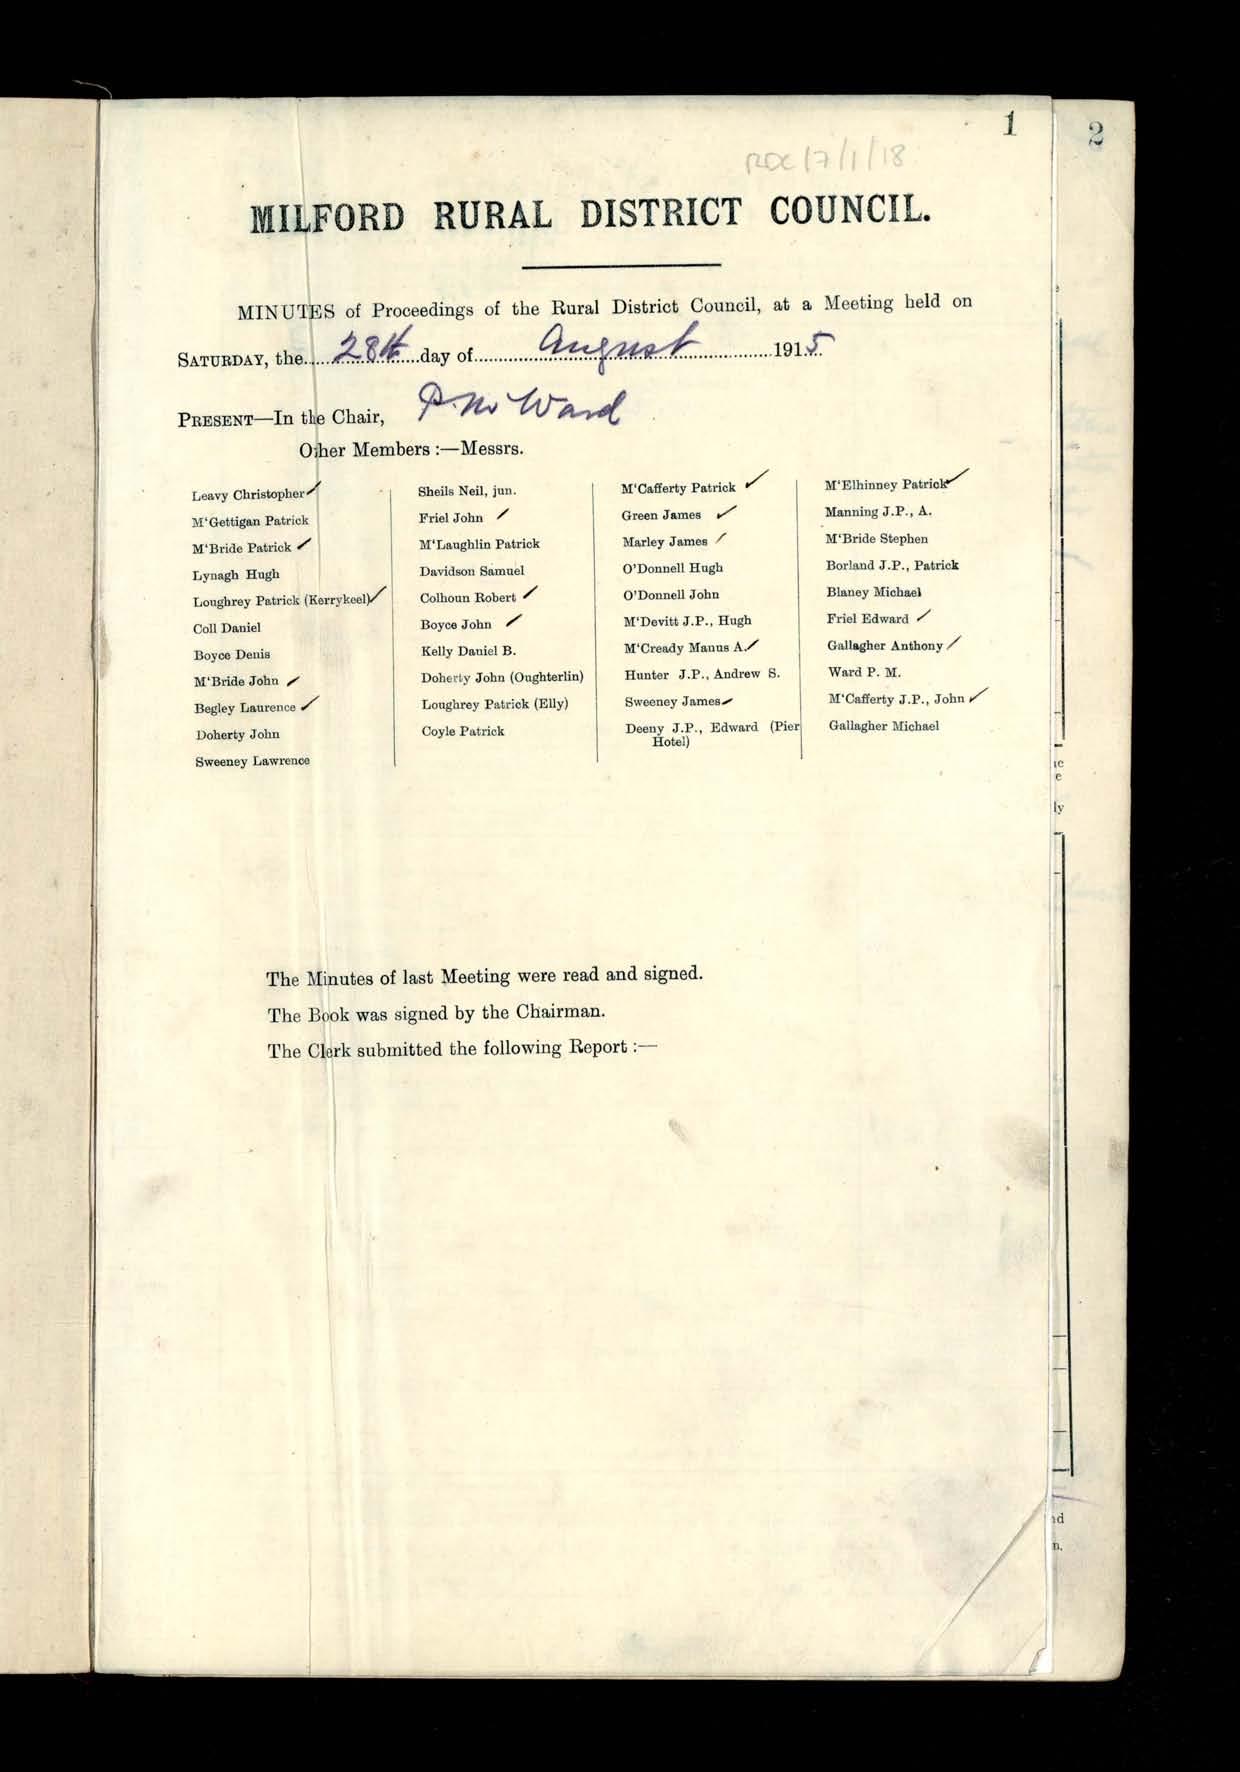 1
2
RDC/7/1/18
MILFORD RURAL DISTRICT COUNCIL.
MINUTES of Proceedings of the Rural District Council, at a Meeting held on
SATURDAY, the 28th day of August 1915.
PRESENT—In the Chair, P. M. Ward
Other Members :—Messrs.
Leavy Christopher ✓
M'Gettigan Patrick
M'Bride Patrick ✓
Lynagh Hugh
Loughrey Patrick (Kerrykeel) ✓
Coll Daniel
Boyce Denis
M'Bride John ✓
Begley Laurence ✓
Doherty John
Sweeney Lawrence
Sheils Neil, jun.
Friel John ✓
M'Laughlin Patrick
Davidson Samuel
Colhoun Robert ✓
Boyce John ✓
Kelly Daniel B.
Doherty John (Oughterlin)
Loughrey Patrick (Elly)
Coyle Patrick
M'Cafferty Patrick ✓
Green James ✓
Marley James ✓
O'Donnell Hugh
O'Donnell John
M'Devitt J.P., Hugh
M'Cready Manus A. ✓
Hunter J.P., Andrew S.
Sweeney James ✓
Deeny J.P., Edward (Pier
Hotel)
M'Elhinney Patrick ✓
Manning J.P., A.
M'Bride Stephen
Borland J.P., Patrick
Blaney Michael
Friel Edward ✓
Gallagher Anthony ✓
Ward P. M.
M'Cafferty J.P., John ✓
Gallagher Michael
The Minutes of last Meeting were read and signed.
The Book was signed by the Chairman.
The Clerk submitted the following Report :—